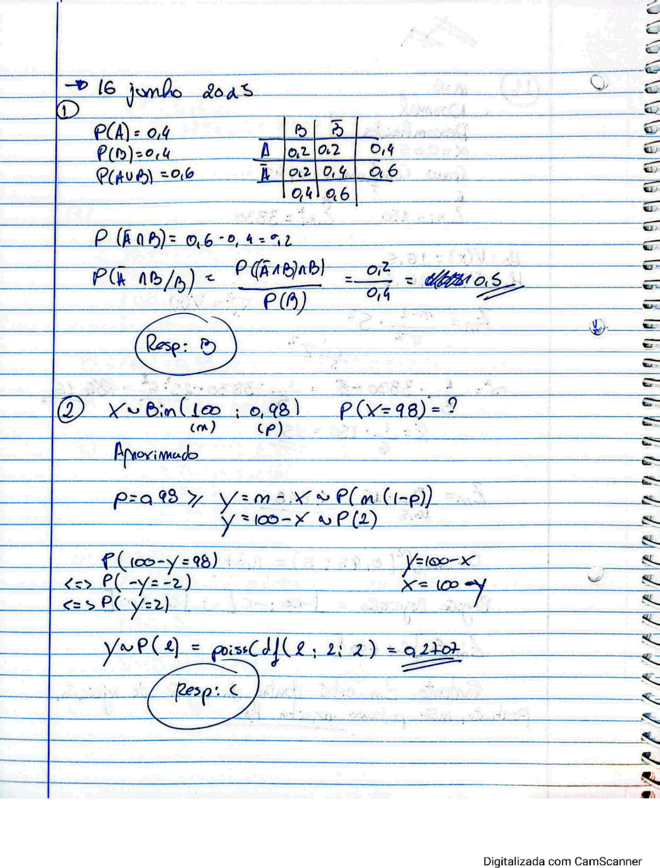 → 16 junho 2025
①
P(A) = 0,4
P(B) = 0,4
P(A∪B) = 0,6
B B̄
A 0,2 0,2 0,4
Ā 0,2 0,4 0,6
0,4 0,6
P(Ā∩B) = 0,6 - 0,4 = 0,2
P(Ā∩B/B) = P((Ā∩B)∩B) / P(B) = 0,2 / 0,4 = 0,5
Resp: B
② X ~ Bin(100 ; 0,98) P(X=98) = ?
(n) (p)
Aproximado
p = 0,98 ≥ Y = n - X ~ P(n(1-p))
Y = 100 - X ~ P(2)
P(100-Y=98) Y=100-X
<=> P(-Y=-2) X=100-Y
<=> P(Y=2)
Y~P(2) = poissCdf(2; 2; 2) = 0,2707
Resp: C
Digitalizada com CamScanner